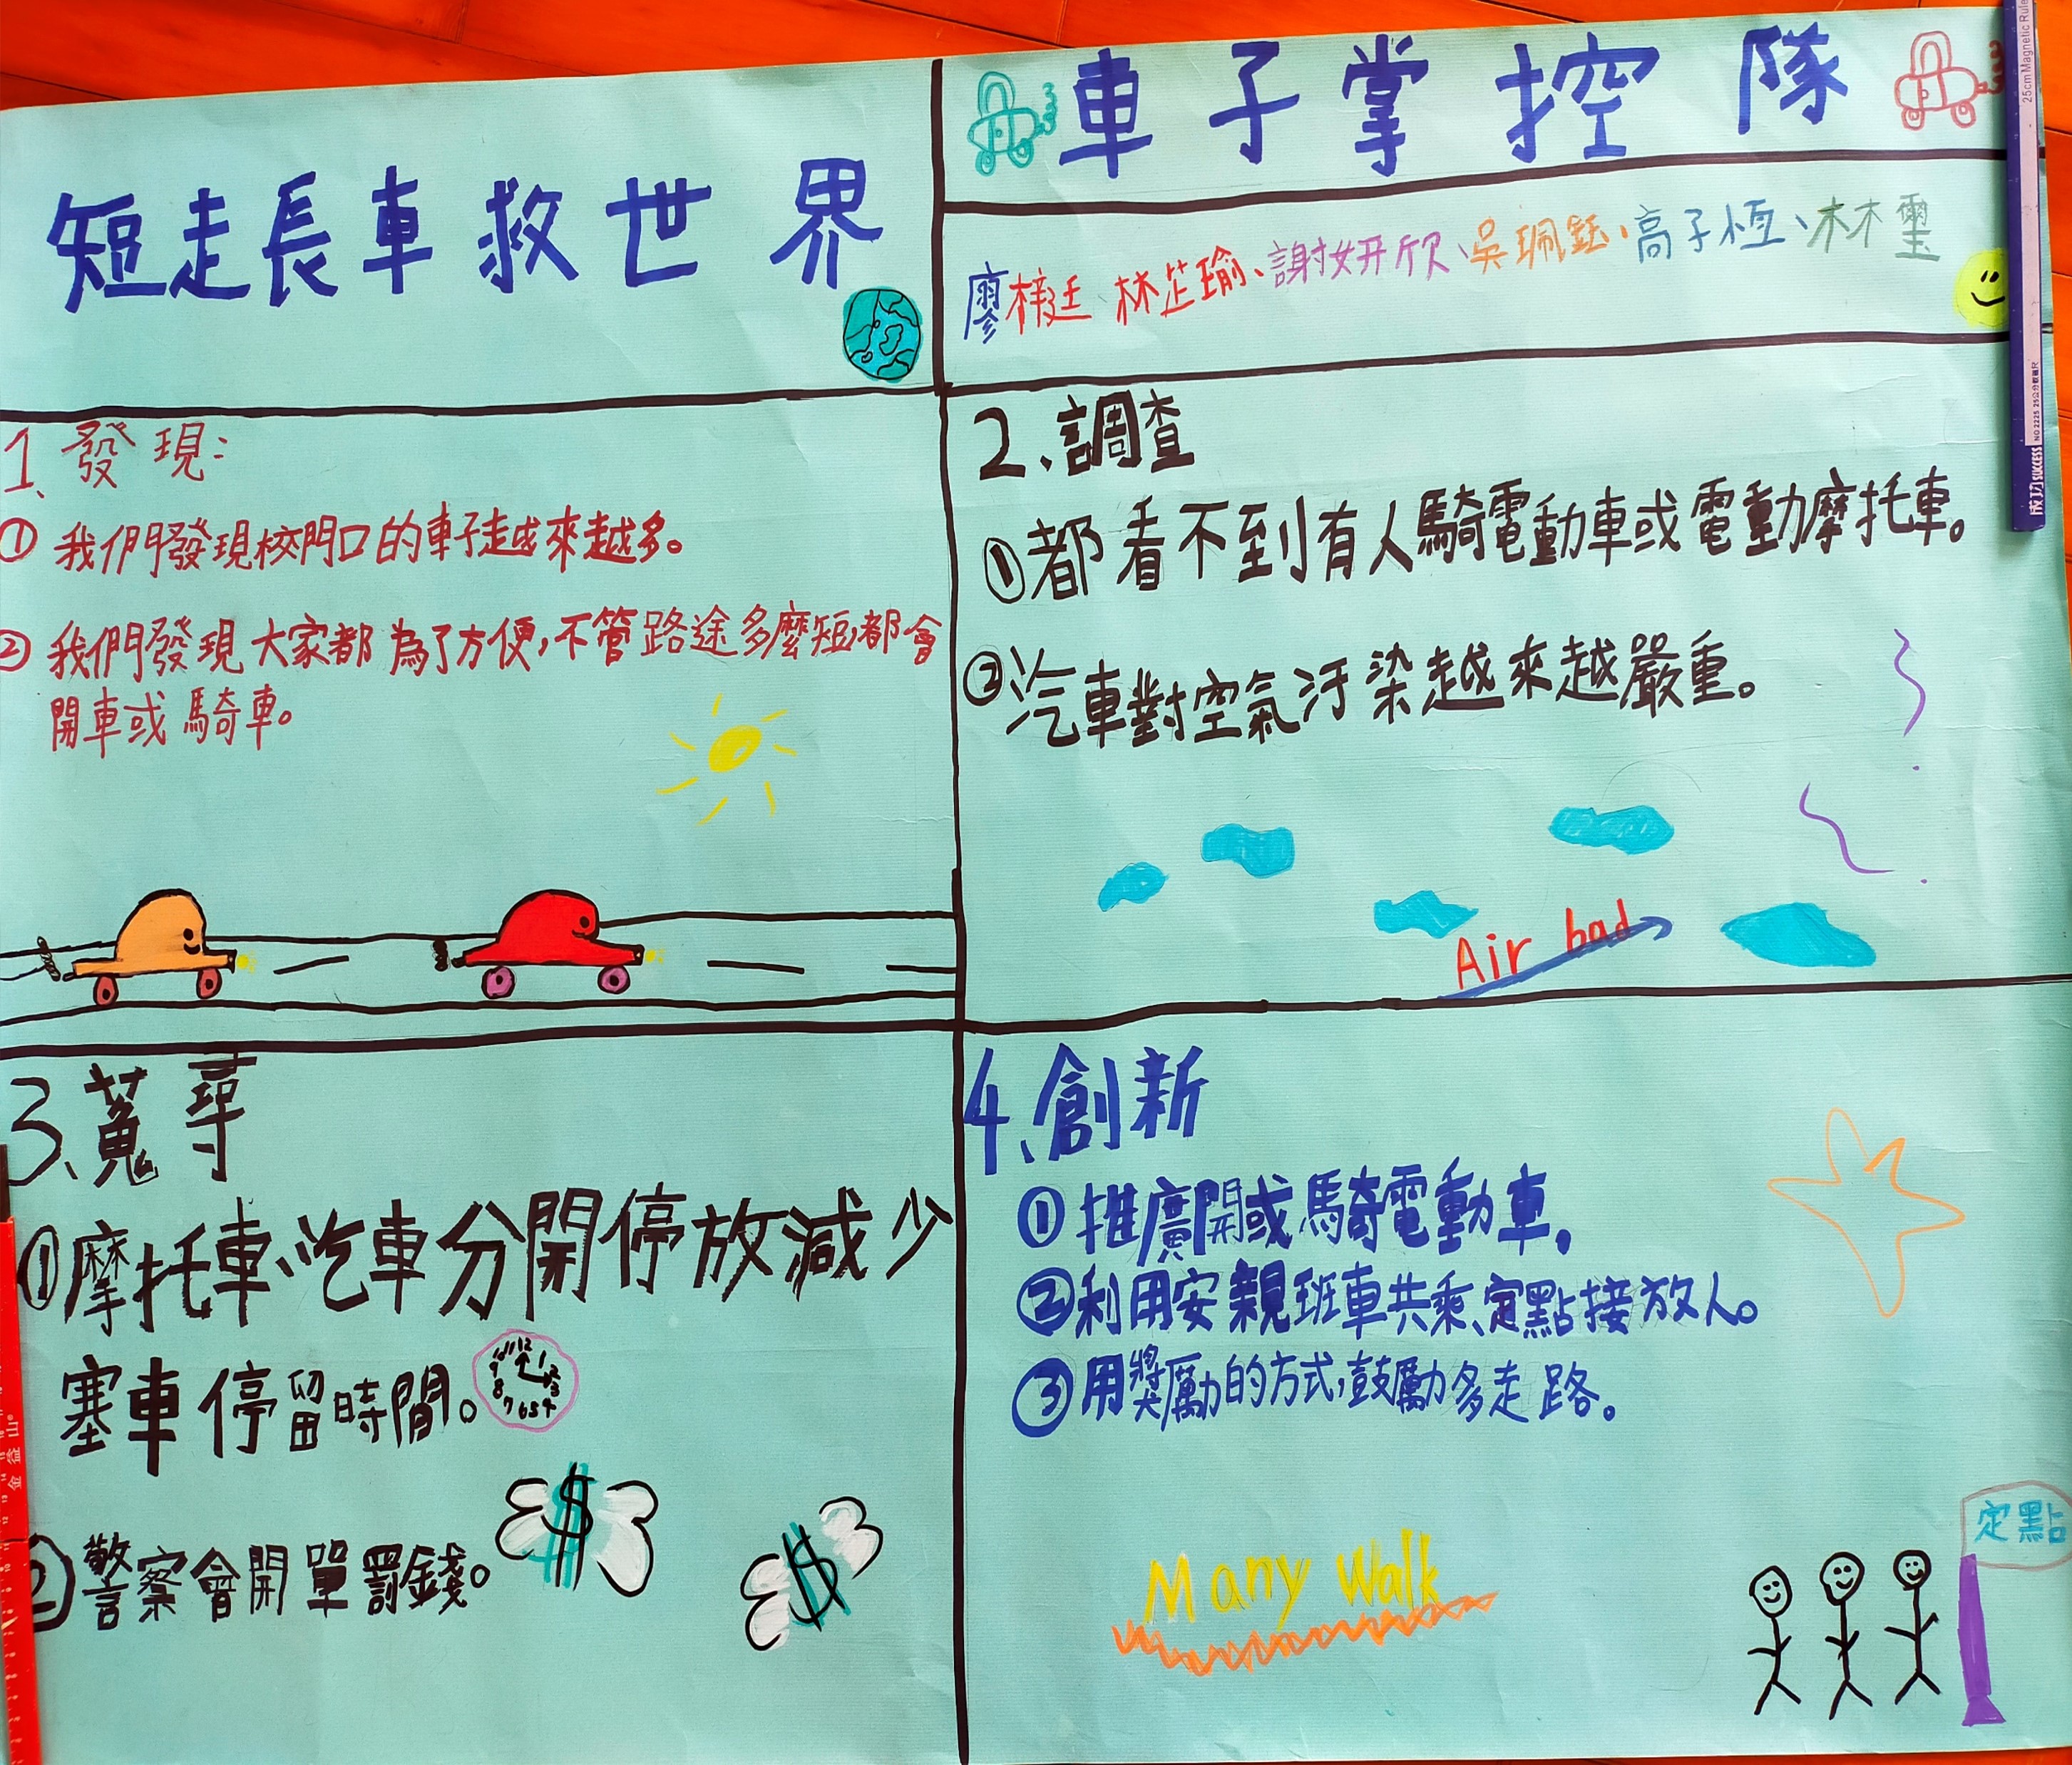 短走長車救世界
車子掌控隊
廖梓廷、林芷瑜、謝妍欣、吳珮鈺、高子恆、林璽
1、發現:
①我們發現校門口的車子越來越多。
②我們發現大家都為了方便,不管路途多麼短,都會
開車或騎車。
2、調查
①都看不到有人騎電動車或電動摩托車。
②汽車對空氣汙染越來越嚴重。
Air bad
3、蒐尋
①摩托車、汽車分開停放減少
塞車停留時間。
②警察會開單罰錢。
$ $
4、創新
①推廣開或騎電動車,
②利用安親班車共乘、定點接放人。
③用獎勵的方式,鼓勵多走路。
Many Walk
定點
25cm Magnetic Rule
成功 SUCCESS NO 2225
金益山